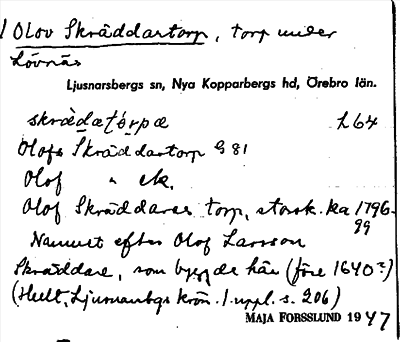 / Olov Skräddartorp, torp under
Lövnäs
Ljusnarsbergs sn, Nya Kopparbergs hd, Örebro län.
skrädatórpa L64
Olofs Skräddartorp G 81
Olof " ek.
Olof Skräddares torp, storsk. ka 1796-
99
Namnet efter Olof Larsson
Skräddare, som byggde här (före 1640?)
(Hult, Ljusnarsbgs krön. 1. uppl. s. 206)
MAJA FORSSLUND 1947